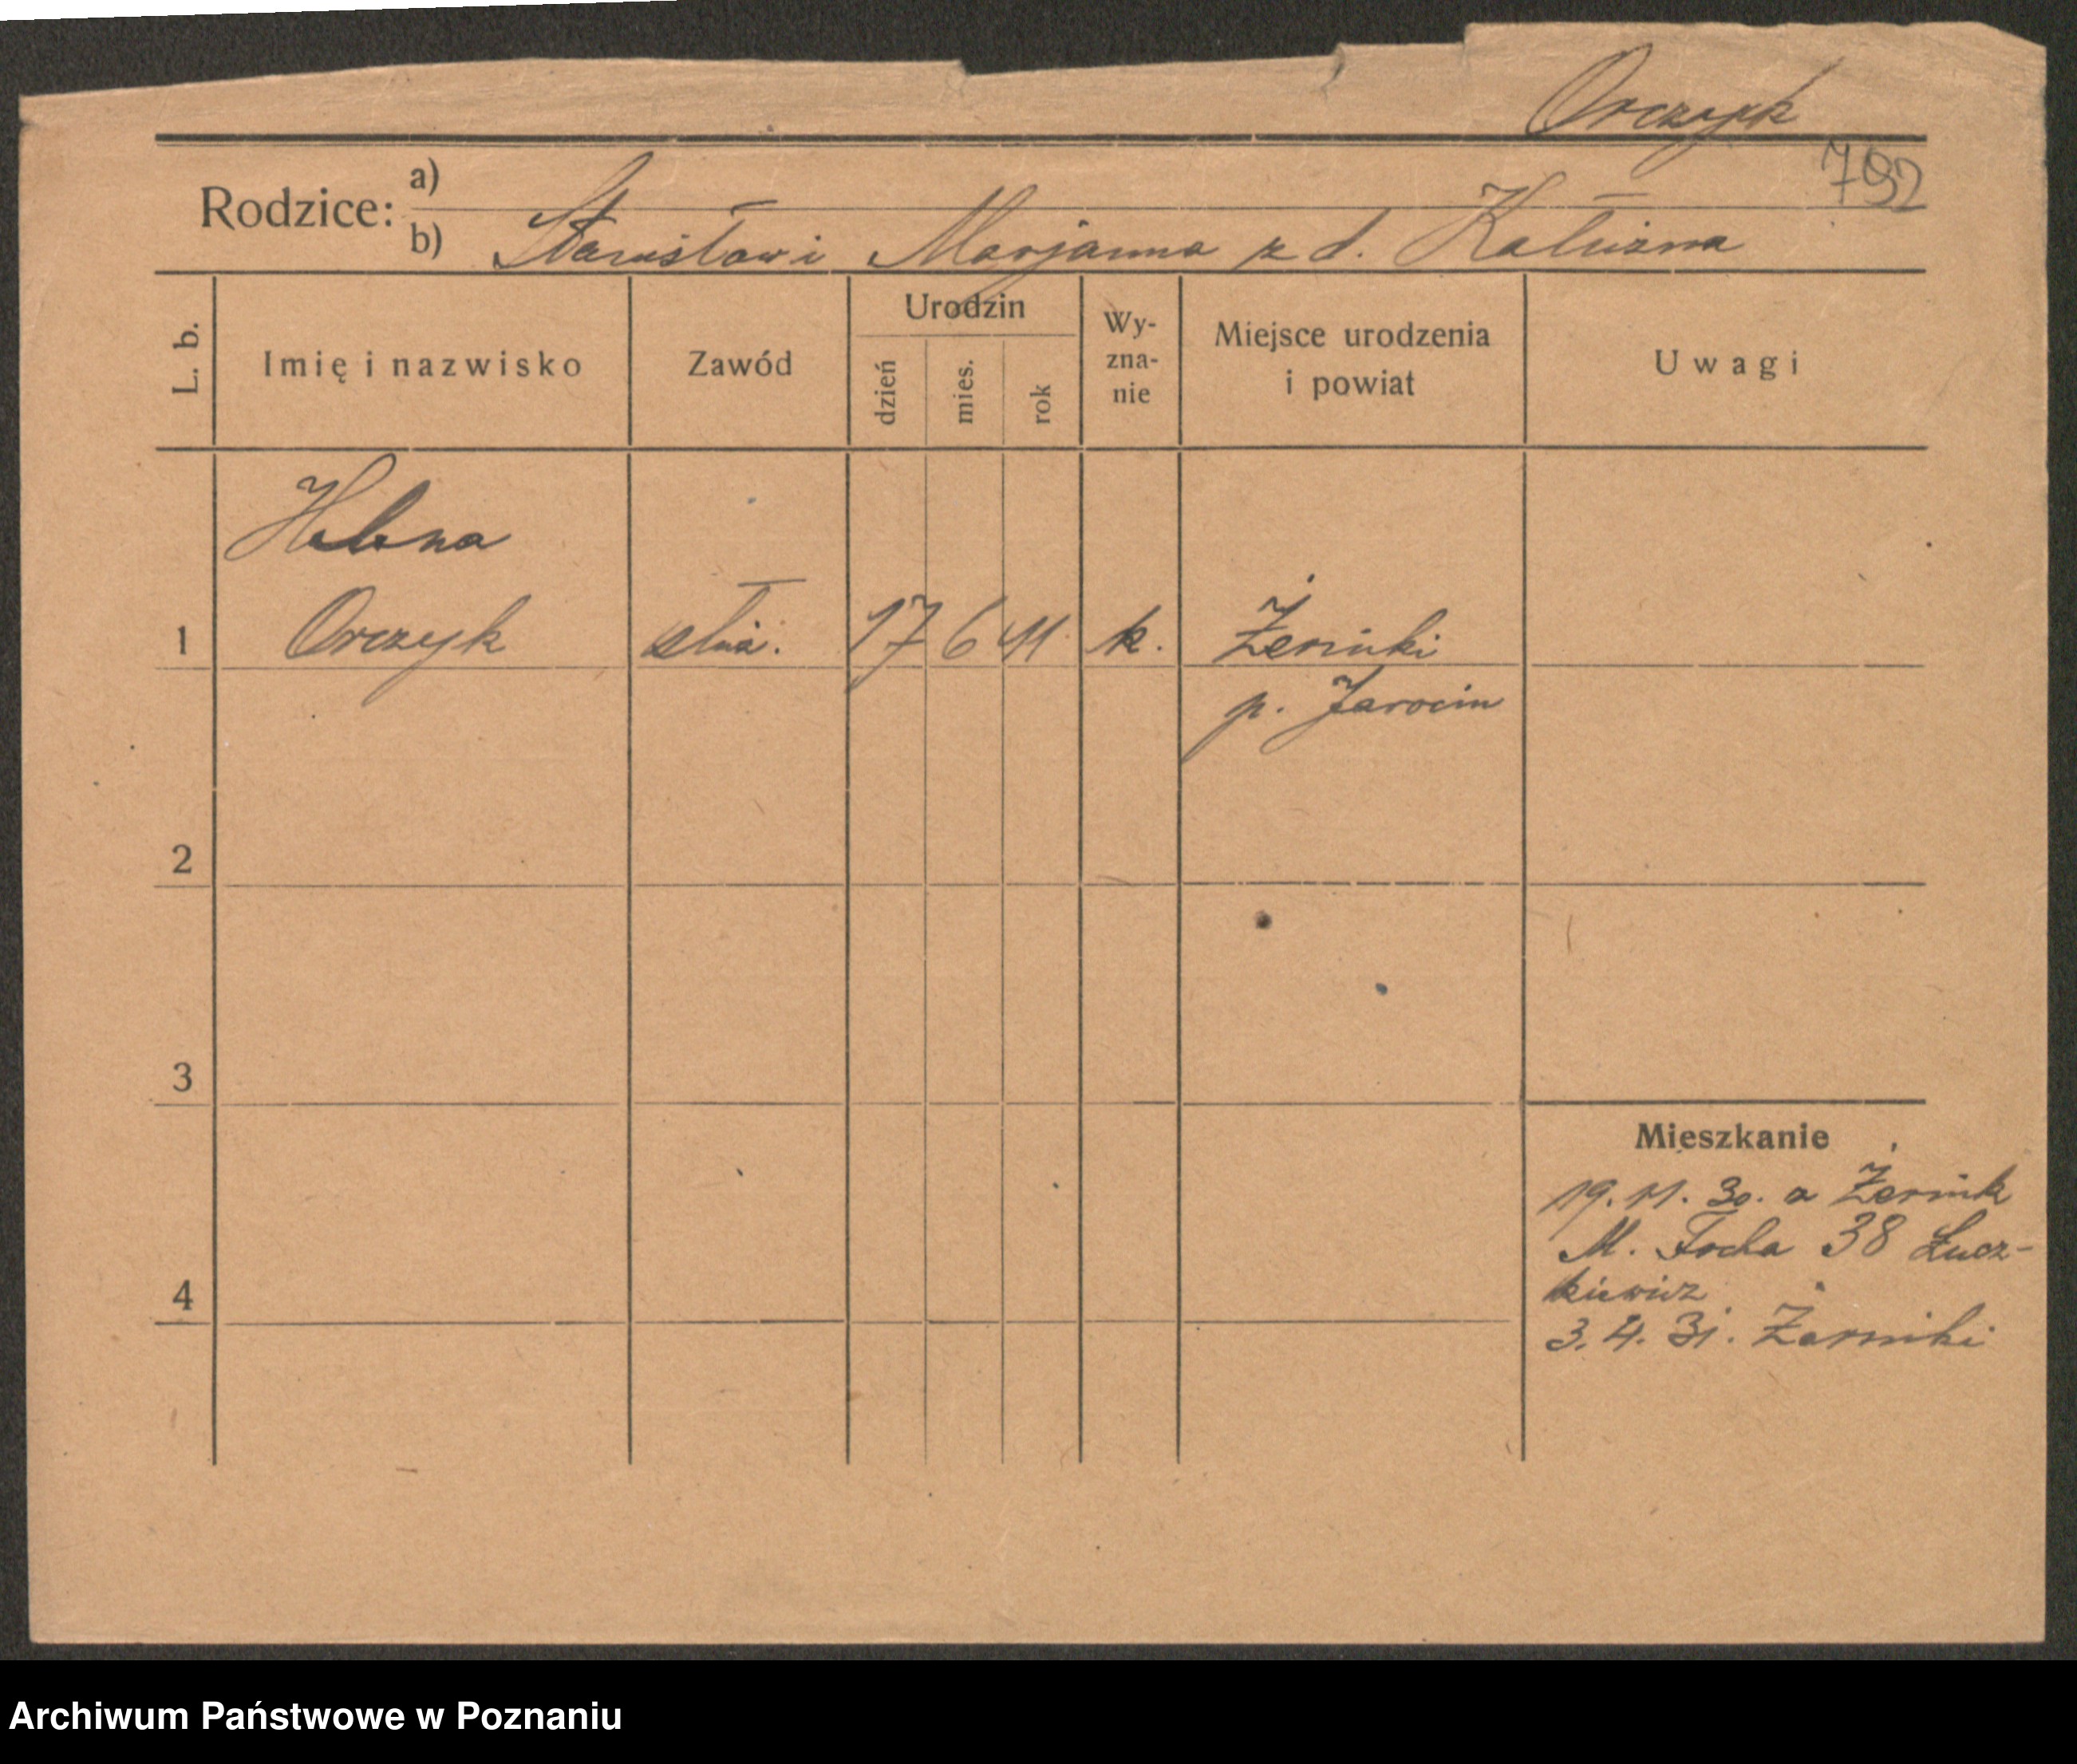 Orczyk
792
Rodzice: a)
b) Stanisław i Marjanna z d. Kałużna
L. b.
Imię i nazwisko
Zawód
Urodzin
dzień
mies.
rok
Wy-
zna-
nie
Miejsce urodzenia
i powiat
Uwagi
Helena
1 Orczyk służ. 17 6 11. k. Żerniki
p. Jarocin
2
3
Mieszkanie
19. 11. 30. z Żernik
M. Focha 38 Łucz-
kiewicz
4
3. 4. 31. Żerniki
Archiwum Państwowe w Poznaniu